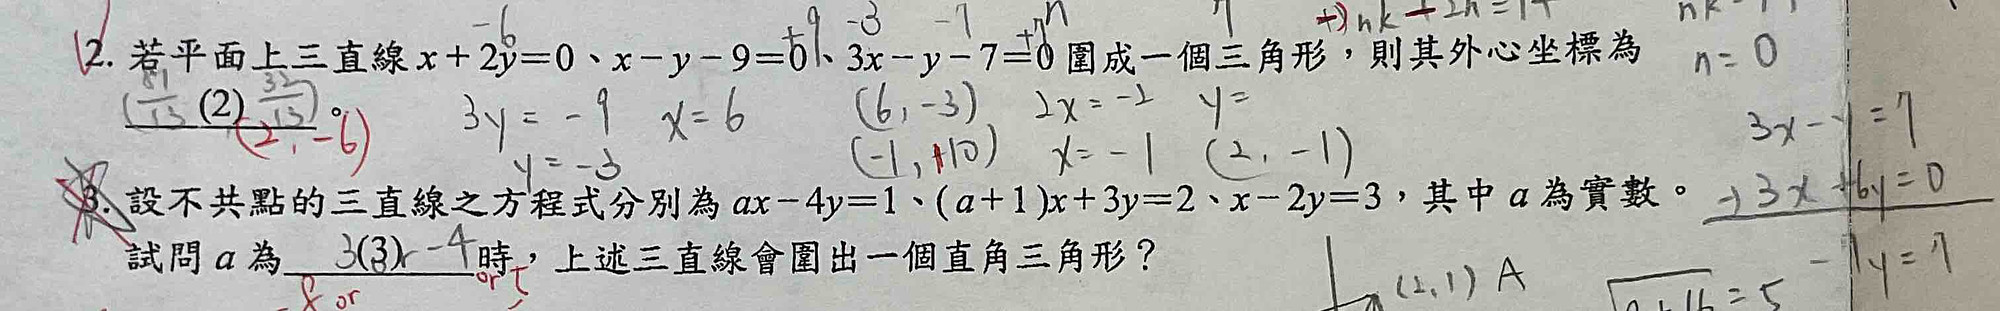 -6 +9 -3 -7 +7 n
+) nk + 2n = 14
2. 若平面上三直線 x+2y=0、x-y-9=0、3x-y-7=0 圍成一個三角形，則其外心坐標為
n = 0
(81/13 (2) 32/13)。 (2, -6)
3y = -9 x = 6 (6, -3) 2x = -2 y =
y = -3 (-1, +10) x = -1 (2, -1)
3x - y = 7
3. 設不共點的三直線之方程式分別為 ax-4y=1、(a+1)x+3y=2、x-2y=3，其中 a 為實數。
-) 3x + 6y = 0
試問 a 為 3(3) -4 時，上述三直線會圍出一個直角三角形？
-7y = 7
-8 or or 5
(2, 1) A
= 5